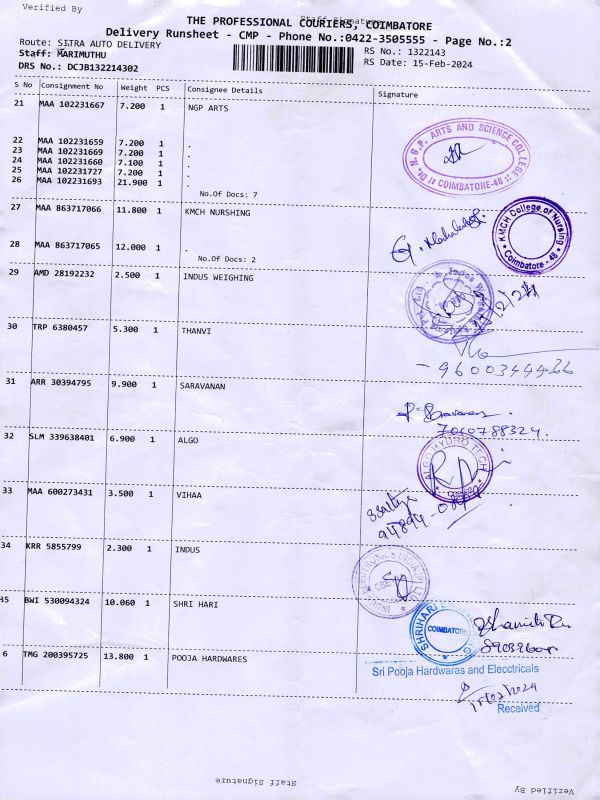 Verified By
Staff Signature
THE PROFESSIONAL COURIERS, COIMBATORE
Delivery Runsheet - CMP - Phone No.:0422-3505555 - Page No.:2
Route: SITRA AUTO DELIVERY
Staff: MARIMUTHU
DRS No.: DCJB132214302
RS No.: 1322143
RS Date: 15-Feb-2024
S No Consignment No Weight PCS Consignee Details Signature
21 MAA 102231667 7.200 1 NGP ARTS
22 MAA 102231659 7.200 1 .
23 MAA 102231669 7.200 1 .
24 MAA 102231660 7.100 1 .
25 MAA 102231727 7.200 1 .
26 MAA 102231693 21.900 1 .
No.Of Docs: 7
Dr. N.G.P. ARTS AND SCIENCE COLLEGE
COIMBATORE-48
27 MAA 863717066 11.800 1 KMCH NURSHING
28 MAA 863717065 12.000 1 .
No.Of Docs: 2
KMCH College of Nursing
Coimbatore - 48
29 AMD 28192232 2.500 1 INDUS WEIGHING
30 TRP 6380457 5.300 1 THANVI
- 9600344466
31 ARR 30394795 9.900 1 SARAVANAN
P. Saravanan.
7060788324.
32 SLM 339638401 6.900 1 ALGO
ALGO HYDRO TECH
33 MAA 600273431 3.500 1 VIHAA
34 KRR 5855799 2.300 1 INDUS
35 BWI 530094324 10.060 1 SHRI HARI
COIMBATORE
6 TMG 200395725 13.800 1 POOJA HARDWARES
Sri Pooja Hardwares and Elecctricals
15/02/2024
Received
Staff Signature
Verified By